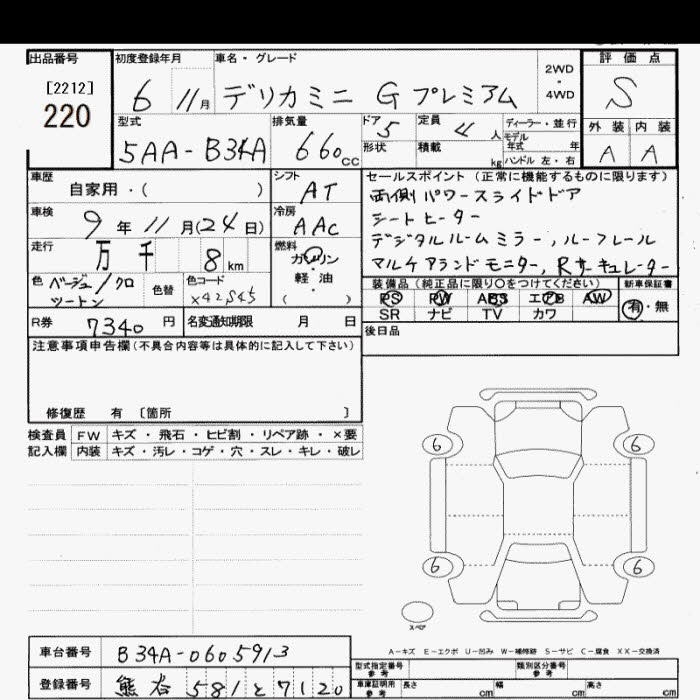 出品番号
[2212]
220
初度登録年月
6 11月
車名・グレード
デリカミニ G プレミアム
2WD
・
4WD
評価点
S
型式
5AA-B34A
排気量
660cc
ドア 5
定員 4人
ディーラー・並行
モデル
年式 年
形状
積載 kg
ハンドル 左・右
外装 内装
A A
車歴
自家用・( )
シフト
AT
セールスポイント (正常に機能するものに限ります)
両側パワースライドドア
シートヒーター
デジタルルームミラー,ルーフレール
マルチアラウンドモニター,Rサーキュレーター
車検
9年11月(24日)
冷房
AAC
走行
万 千 8km
燃料
ガソリン
・
軽油
・
( )
色
ベージュ/クロ
ツートン
色替
色コード
X42,545
装備品 (純正品に限り○をつけてください)
PS PW ABS エアB AW
SR ナビ TV カワ
新車保証書
有・無
R券 7340円
名変通知期限 月 日
後日品
注意事項申告欄(不具合内容等は具体的に記入して下さい)
修復歴 有 〔箇所 〕
検査員
記入欄
FW キズ・飛石・ヒビ割・リペア跡・×要
内装 キズ・汚レ・コゲ・穴・スレ・キレ・破レ
6 6
6 6
スペア
A-キズ E-エクボ U-凹み W-補修跡 S-サビ C-腐食 XX-交換済
車台番号 B34A-0605913
登録番号 熊谷 581 と 7120
型式指定番号
参考
類別区分番号
参考
車庫証明用
参考
長さ cm 幅 cm 高さ cm